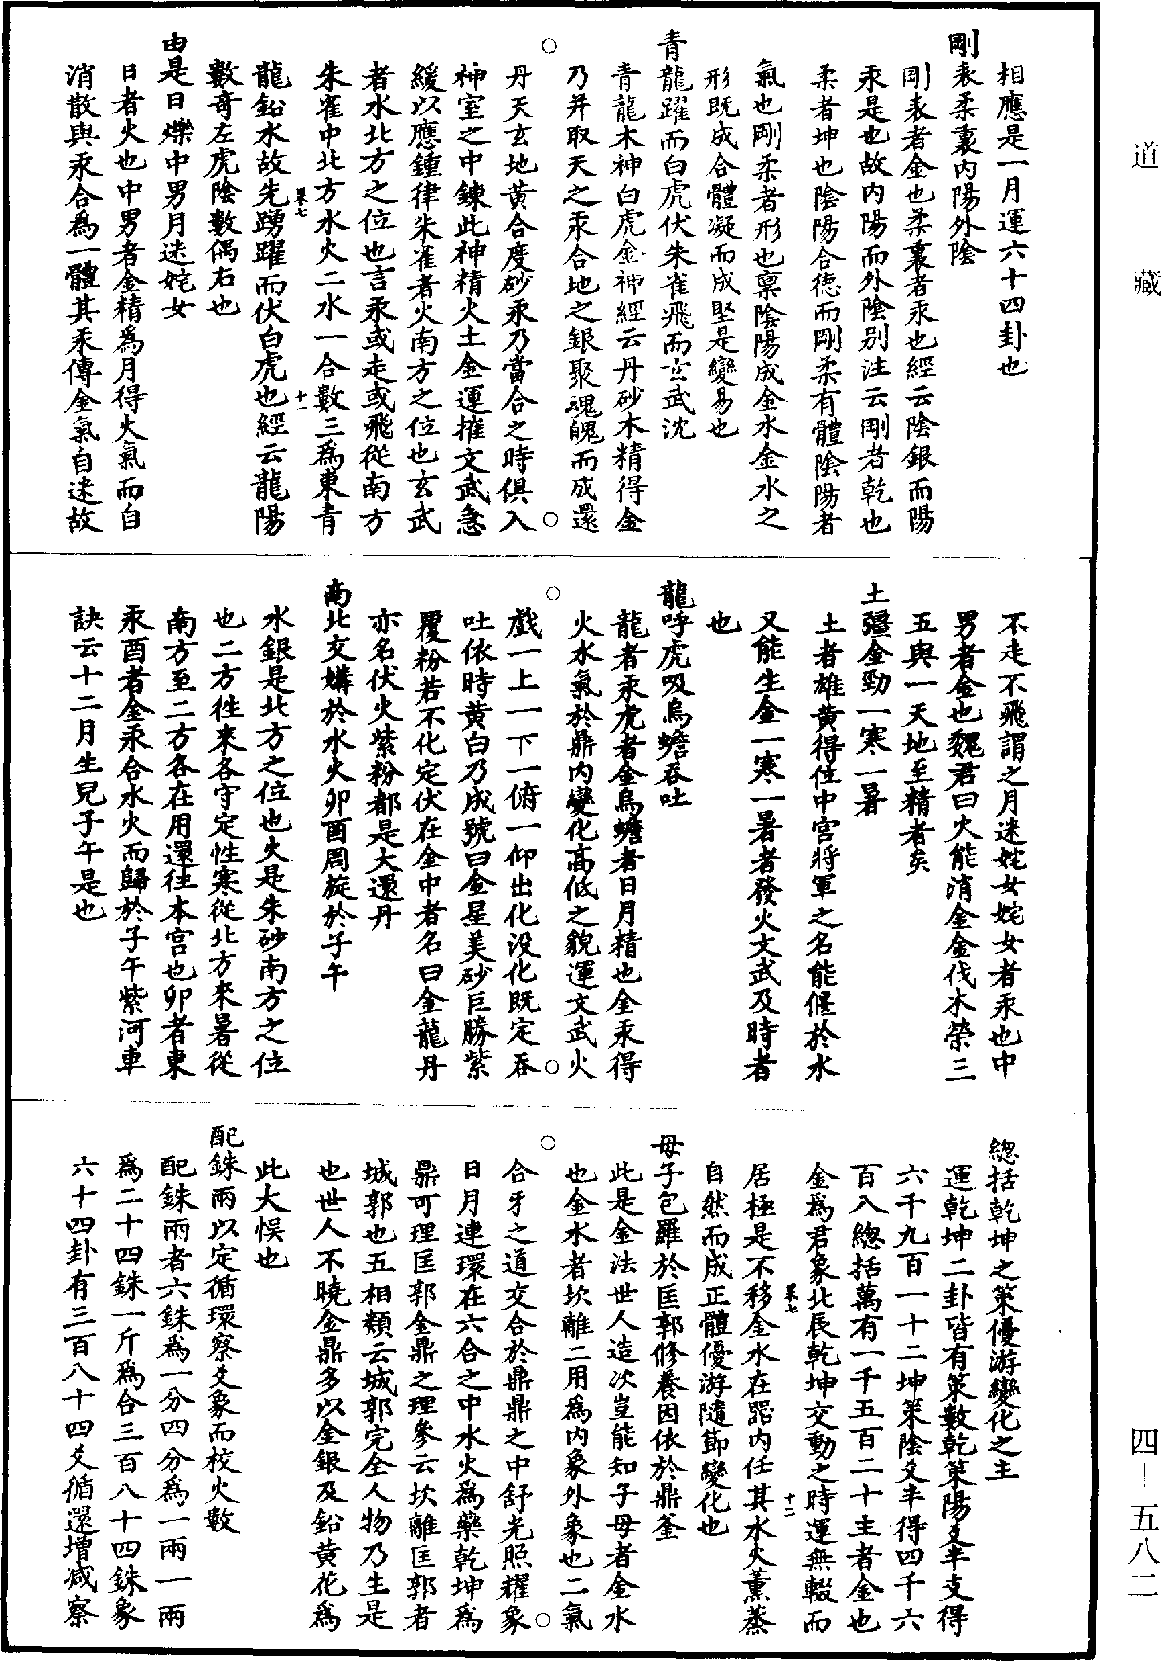 道藏
四—五八二
相應是一月運六十四卦也
剛表柔裏內陽外陰
剛表者金也柔裏者汞也經云陰銀而陽
汞是也故內陽而外陰别注云剛者乾也
柔者坤也陰陽合德而剛柔有體陰陽者
氣也剛柔者形也稟陰陽成金水金水之
形既成合體凝而成堅是變易也
青龍躍而白虎伏朱雀飛而玄武沈
青龍木神白虎金神經云丹砂木精得金
乃并取天之汞合地之銀聚魂魄而成還
丹天玄地黃合度砂汞乃當合之時俱入
神室之中鍊此神精火土金運搉文武急
緩以應鍾律朱雀者火南方之位也玄武
者水北方之位也言汞或走或飛從南方
朱雀中北方水火二水一合數三為東青
卷七
十一
龍鉛水故先踴躍而伏白虎也經云龍陽
數奇左虎陰數偶右也
由是日爍中男月迷姹女
日者火也中男者金精為月得火氣而自
消散與汞合為一體其汞傳金氣自迷故
不走不飛謂之月迷姹女姹女者汞也中
男者金也魏君曰火能消金金伐木榮三
五與一天地至精者矣
土彊金勁一寒一暑
土者雄黃得住中宮將軍之名能偃於水
又能生金一寒一暑者發火文武及時者
也
龍呼虎吸烏蟾吞吐
龍者汞虎者金烏蟾者日月精也金汞得
火水氣於鼎內變化高低之貌運文武火
戲一上一下一俯一仰出化没化既定吞
吐依時黃白乃成號曰金星美砂巨勝紫
覆粉若不化定伏在金中者名曰金龍丹
亦名伏火紫粉都是大還丹
南北交媾於水火卯酉周旋於子午
水銀是北方之位也火是朱砂南方之位
也二方徃來各守定性寒從北方來暑從
南方至二方各在用還往本宮也卯者東
汞酉者金汞合水火而歸於子午紫河車
訣云十二月生兒子午是也
緫括乾坤之策優游變化之主
運乾坤二卦皆有策數乾策陽爻半支得
六千九百一十二坤策陰爻半得四千六
百八緫括萬有一千五百二十主者金也
金為君象北辰乾坤交動之時運無輟而
卷七
十二
居極是不移金水在器內任其水火薰蒸
自然而成正體優游隨節變化也
母子包羅於匡郭修養因依於鼎釜
此是金法世人造次豈能知子母者金水
也金水者坎離二用為內象外象也二氣
合牙之道交合於鼎鼎之中舒光照耀象
日月連環在六合之中水火為藥乾坤為
鼎可理匡郭金鼎之理參云坎離匡郭者
城郭也五相類云城郭完全人物乃生是
也世人不曉金鼎多以金銀及鉛黃花為
此大悮也
配銖兩以定循環察爻象而校火數
配銖兩者六銖為一分四分為一兩一兩
為二十四銖一斤為合三百八十四銖象
六十四卦有三百八十四爻循還增减察